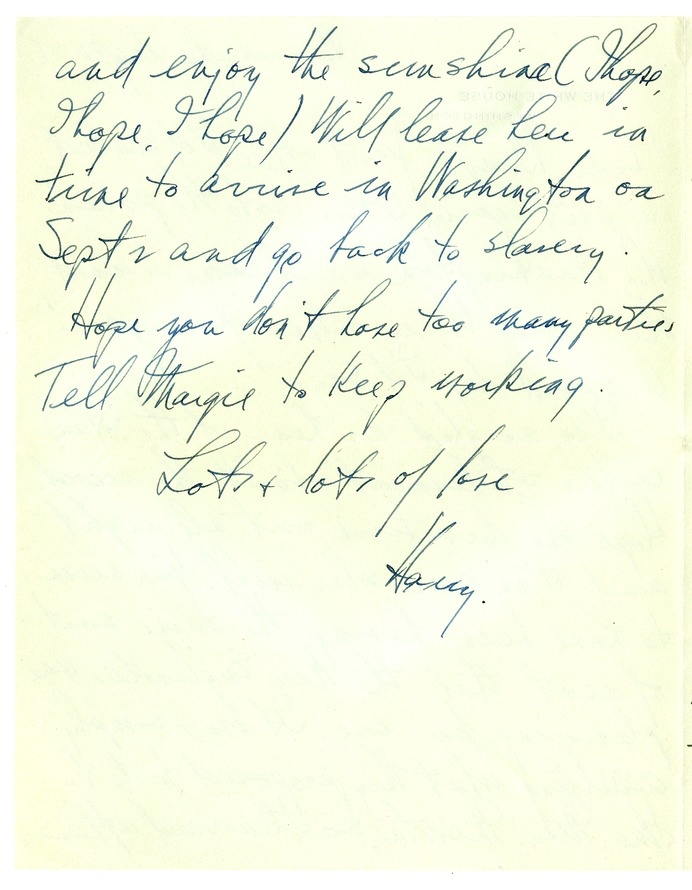 and enjoy the sunshine (I hope,
I hope, I hope) Will leave here in
time to arrive in Washington on
Sept 2 and go back to slavery.
Hope you don't have too many parties
Tell Margie to keep working.
Lots + lots of love
Harry.